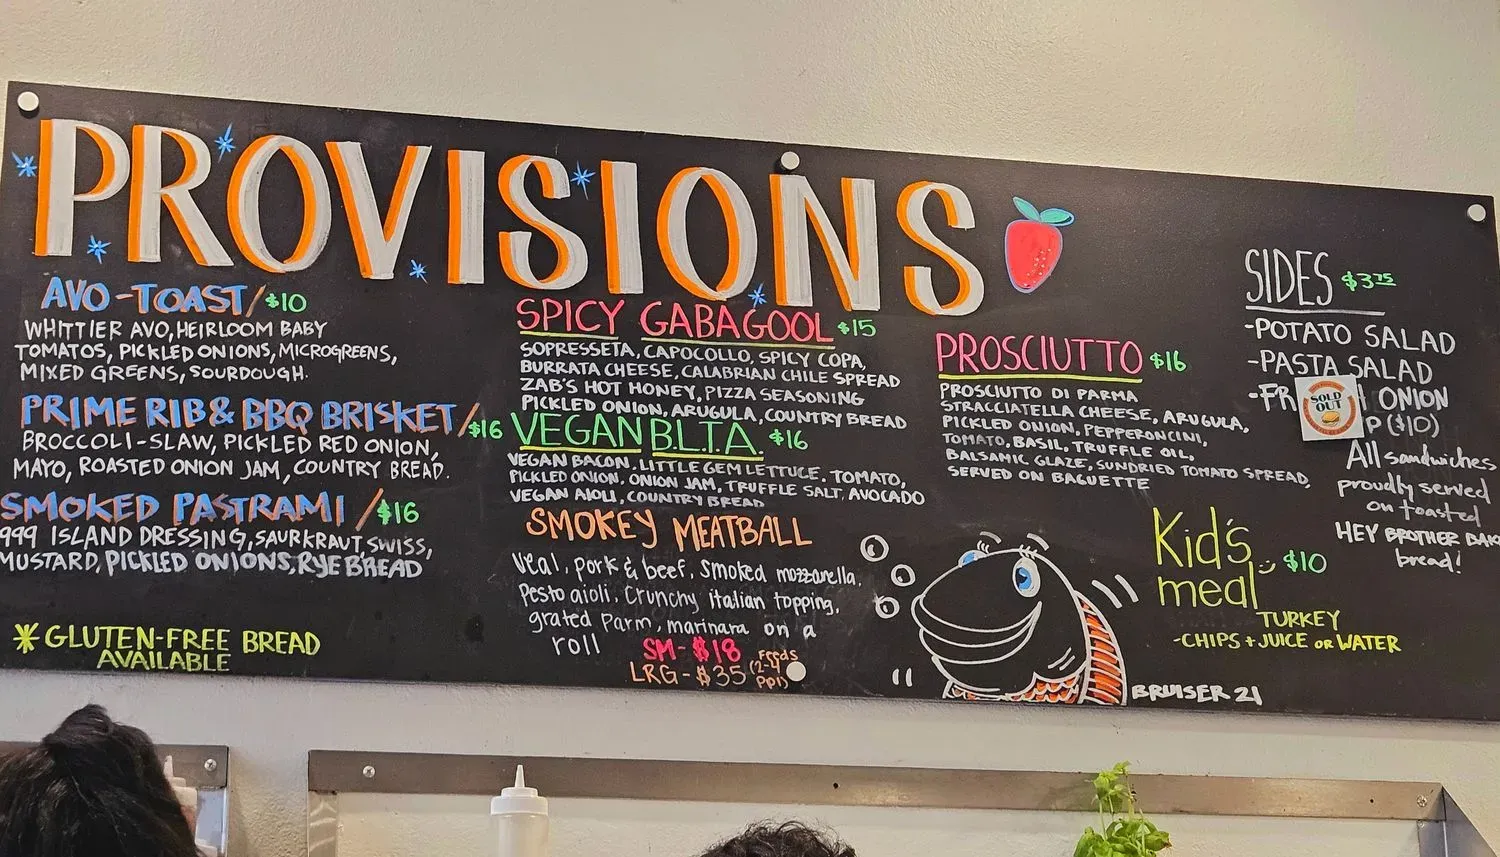 PROVISIONS
AVO-TOAST/$10
WHITTIER AVO, HEIRLOOM BABY
TOMATOS, PICKLED ONIONS, MICROGREENS,
MIXED GREENS, SOURDOUGH.
PRIME RIB & BBQ BRISKET/$16
BROCCOLI-SLAW, PICKLED RED ONION,
MAYO, ROASTED ONION JAM, COUNTRY BREAD.
SMOKED PASTRAMI/$16
999 ISLAND DRESSING, SAURKRAUT, SWISS,
MUSTARD, PICKLED ONIONS, RYE BREAD
* GLUTEN-FREE BREAD
AVAILABLE
SPICY GABAGOOL $15
SOPRESSETA, CAPOCOLLO, SPICY COPA,
BURRATA CHEESE, CALABRIAN CHILE SPREAD
ZAB'S HOT HONEY, PIZZA SEASONING
PICKLED ONION, ARUGULA, COUNTRY BREAD
VEGAN B.L.T.A. $16
VEGAN BACON, LITTLE GEM LETTUCE, TOMATO,
PICKLED ONION, ONION JAM, TRUFFLE SALT, AVOCADO
VEGAN AIOLI, COUNTRY BREAD
SMOKEY MEATBALL
Veal, pork & beef, Smoked mozzarella,
Pesto aioli, Crunchy italian topping,
grated Parm, marinara on a
roll
SM-$18
LRG-$35 (Feeds
2-4
ppl)
PROSCIUTTO $16
PROSCIUTTO DI PARMA
STRACCIATELLA CHEESE, ARUGULA,
PICKLED ONION, PEPPERONCINI,
TOMATO, BASIL, TRUFFLE OIL,
BALSAMIC GLAZE, SUNDRIED TOMATO SPREAD,
SERVED ON BAGUETTE
BRUISER 21
SIDES $3.75
-POTATO SALAD
-PASTA SALAD
-FR ONION
P ($10)
SOLD
OUT
All sandwiches
proudly served
on toasted
HEY BROTHER BAK
bread!
Kid's
meal $10
TURKEY
-CHIPS + JUICE OR WATER